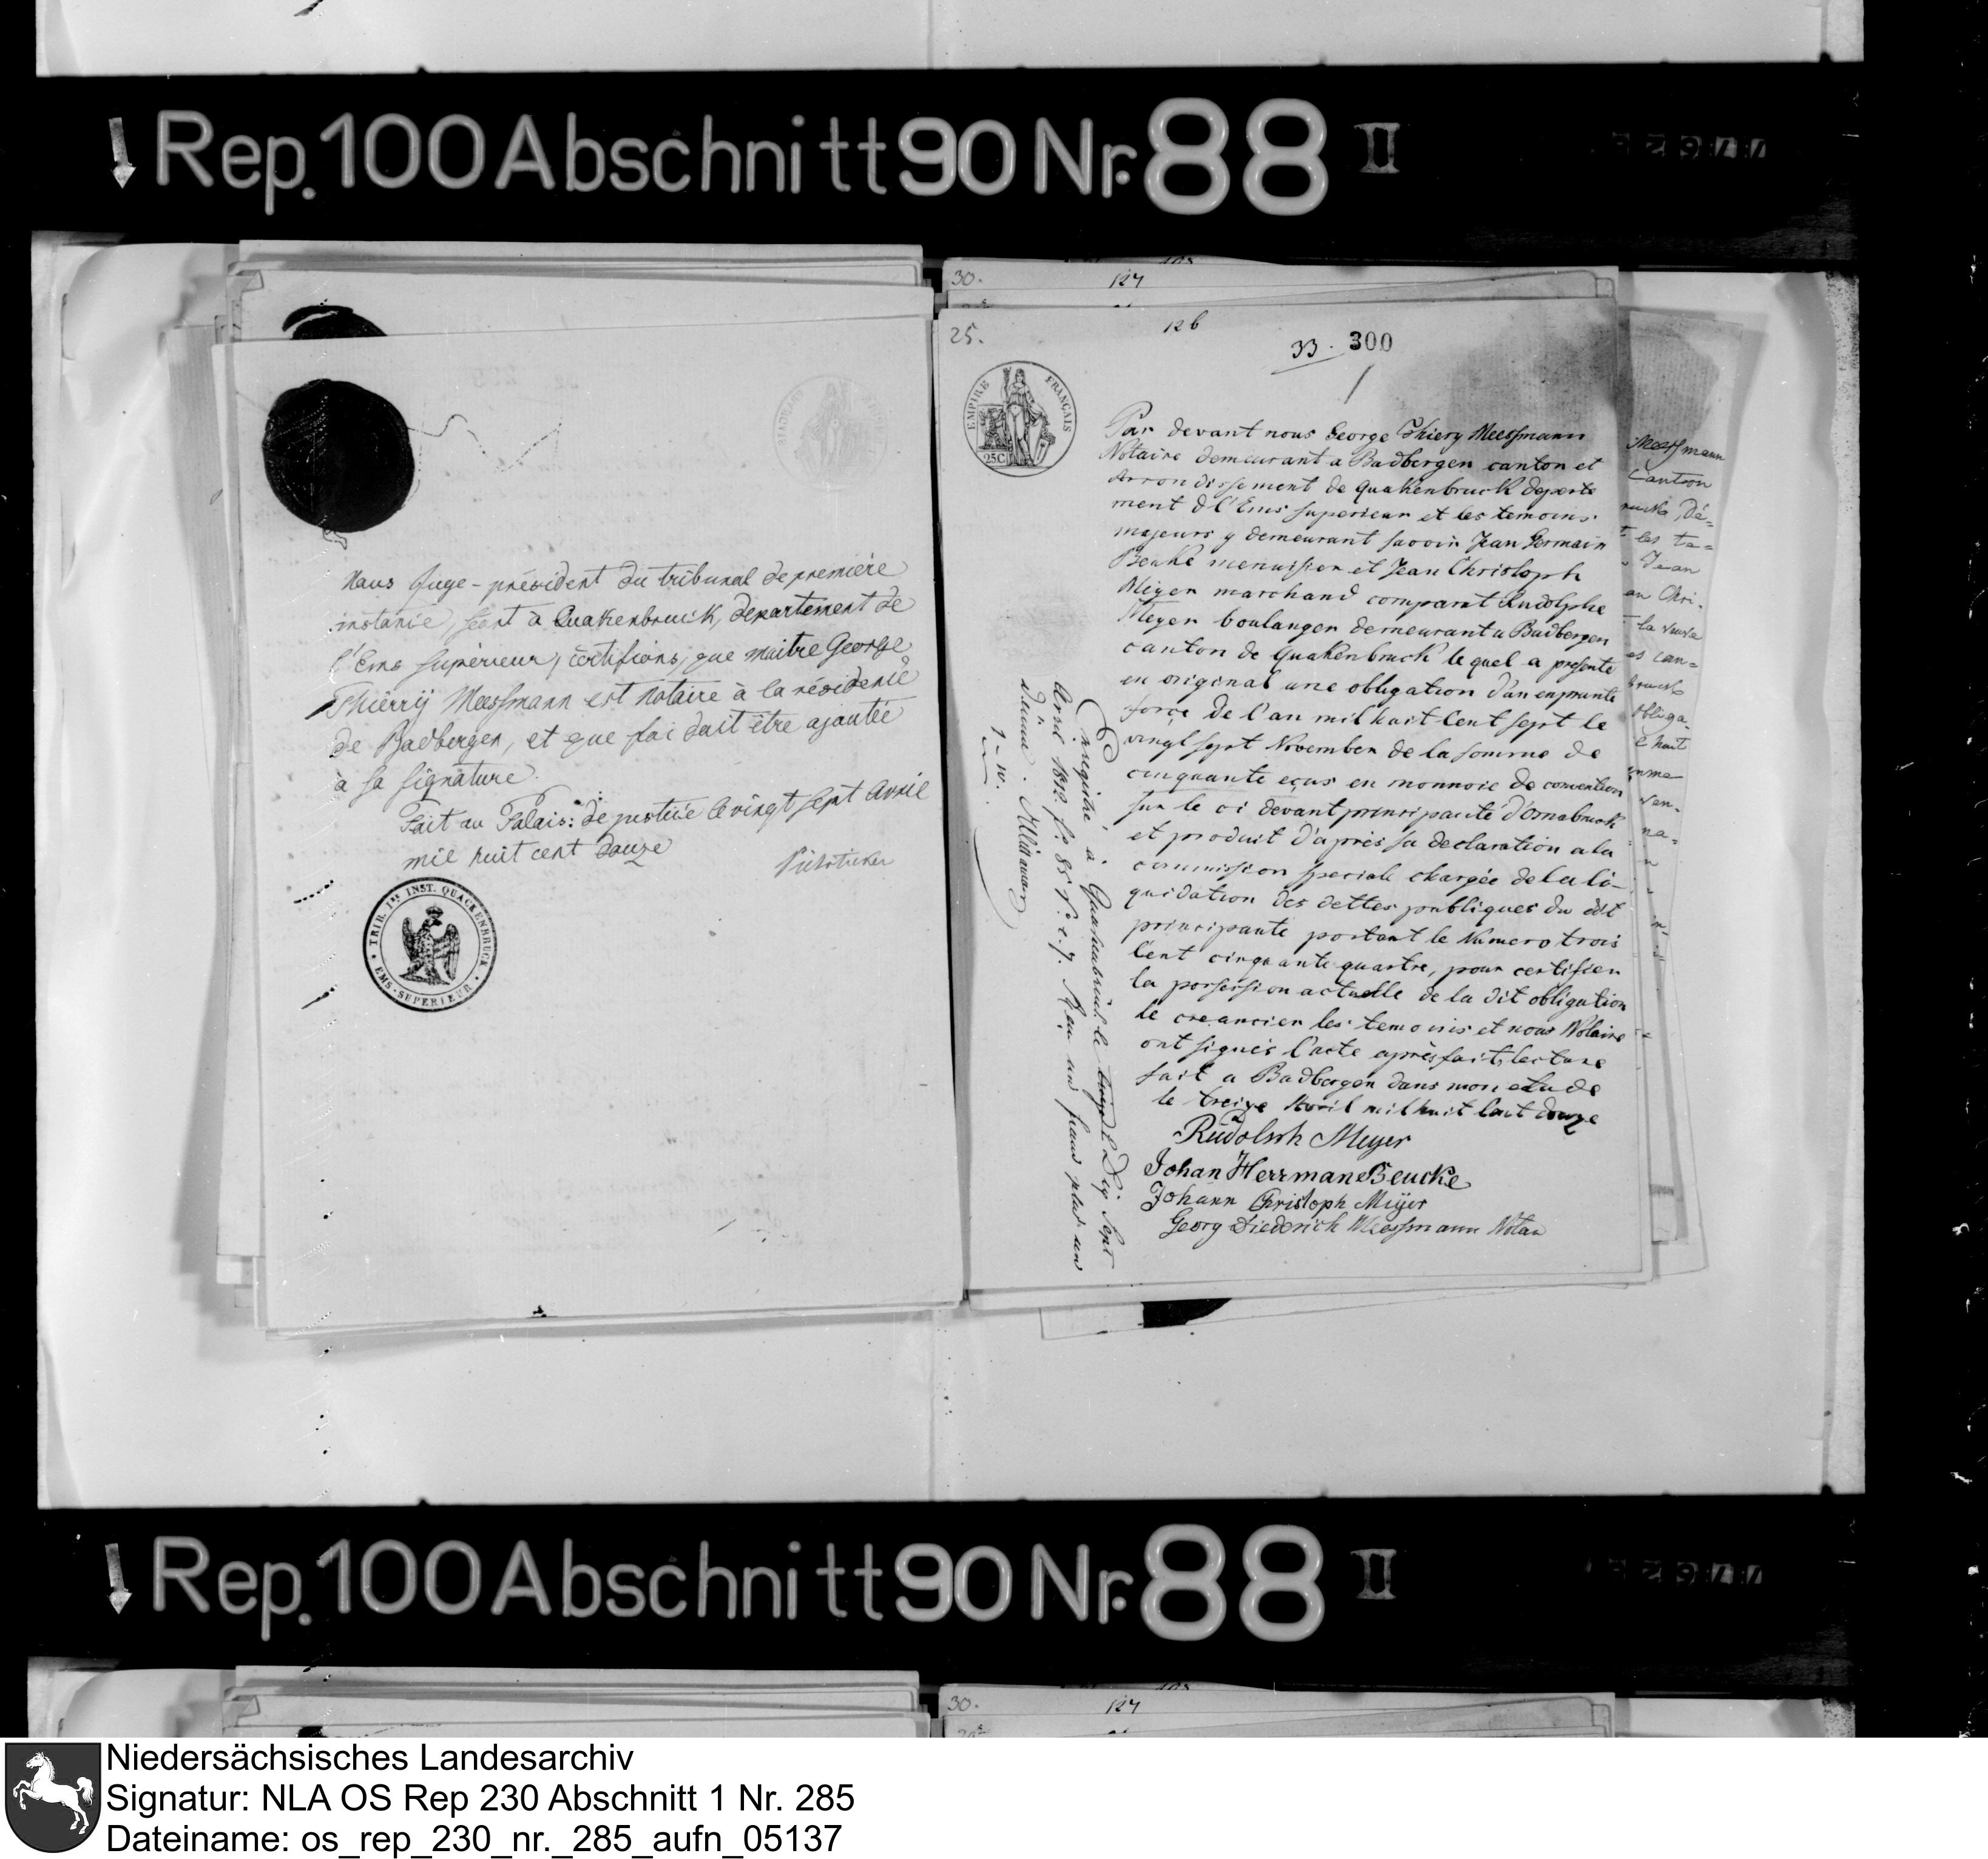 Rep. 100 Abschnitt 90 Nr. 88 II
Nous Juge-président du tribunal de premiére
instance, séant à Quakenbruck, departement de
l'Ems supérieur, certifions, que maitre George
Thiérrÿ Meessmann est Notaire à la résidence
de Badbergen, et que foi doit être ajoutée
à sa signature.
Fait au Palais: de justice le vingt sept Avril
mil huit cent douze
TRIB. Ire INST. QUACKENBRUCK
EMS-SUPERIEUR
30. 127
25. 126
33. 300
EMPIRE FRANÇAIS
25C
Par devant nous George Thiery Meessmann
Notaire demeurant a Badbergen canton et
Arrondissement de Quakenbruck departe
ment d l'Ems superieur et les temoins
majeurs y demeurant savoir Jean Germain
Beuke menuisier et Jean Christoph
Meyer marchand comparat Rudolphe
Meyer boulanger demeurant a Badbergen
canton de Quakenbruck le quel a presente
en original une obligation d'un emprunte
forçe de l'an mil huit Cent sept le
vingt sept November de la somme de
cinquante eçus en monnoie de convention
sur le ci devant principauté d'Osnabruck
et produit d'après sa declaration a la
commission speciale chargée de la li-
quidation des dettes publiques du dit
principaute portant le Numero trois
Cent cinquante quatre, pour certifier
la possession actuelle de la dit obligation
le creancier les temoins et nous Notaire
ont signés l'acte après fait lecture
fait a Badbergen dans mon etude
le treize Avril mil huit Cent douze
Rudolph Meyer
Johan Herrman Beucke
Johann Christoph Meÿer
Georg Diederich Meessmann Notar
Enregistré à Quackenbruck le Dix Sept
Avril 1812. f. 85 Reçu un franc plus un
decime.
Meessmann
Canton
bruck, dé-
les te-
Jean
an Chri-
la veuve
es can-
bruck
obliga-
huit
Rep. 100 Abschnitt 90 Nr. 88 II
30. 127
Niedersächsisches Landesarchiv
Signatur: NLA OS Rep 230 Abschnitt 1 Nr. 285
Dateiname: os_rep_230_nr._285_aufn_05137